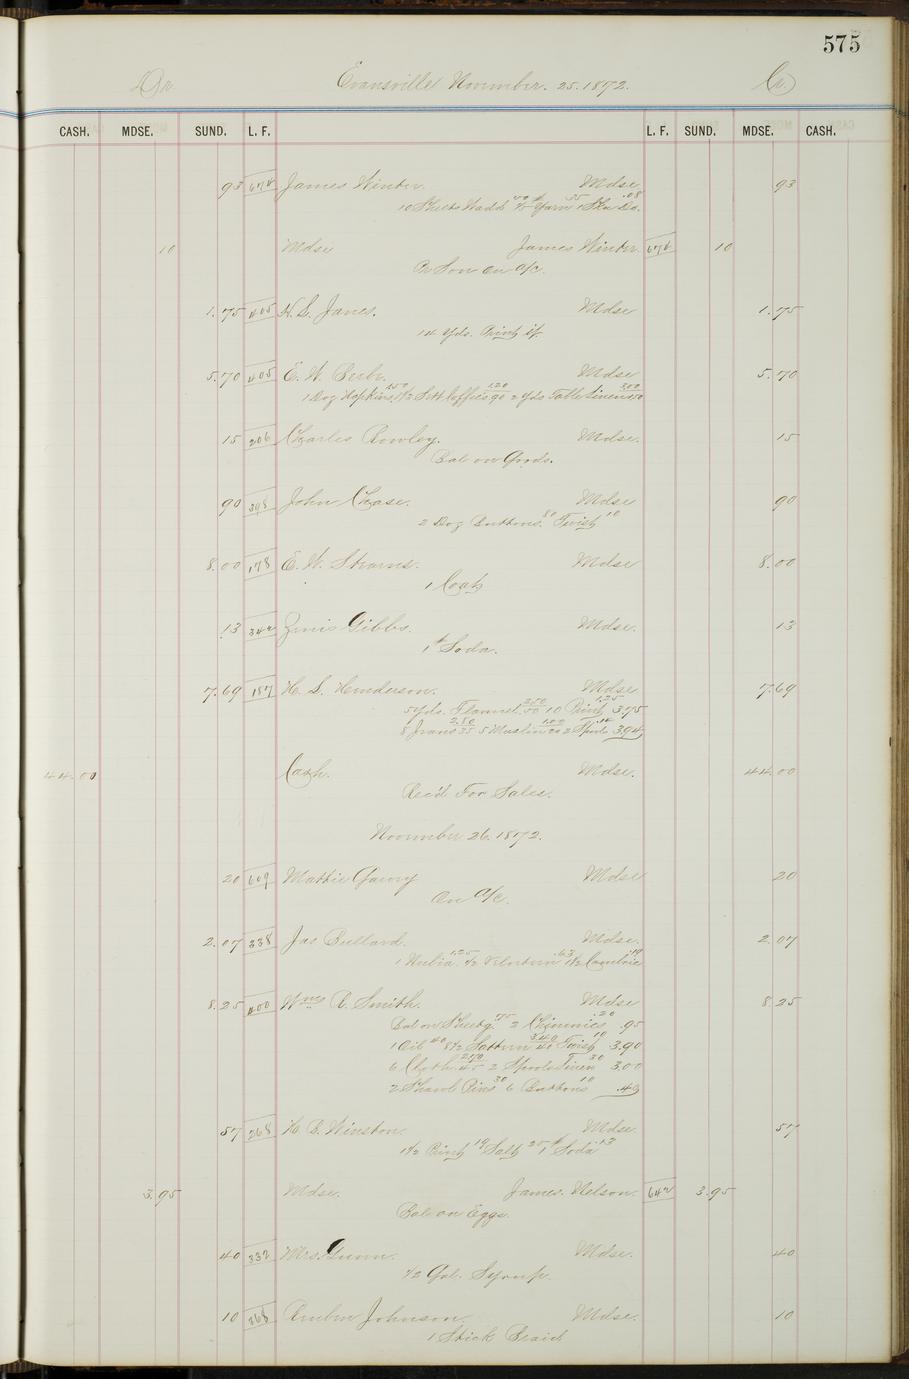 575
Dr Evansville November. 25. 1872. Cr
CASH. MDSE. SUND. L. F. L. F. SUND. MDSE. CASH.
93 674 James Winter. Mdse 93
10 Sheets Wadd Yarn 35 .08
10 Mdse James Winter. 674 10
Pr Son on a/c.
1.75 405 H. S. Janes. Mdse 1.75
14 Yds. Print
5.70 405 E. W. Mdse 5.70
1 Doz 1.50 1.20 90 2 Yds Table Linen 3.00
15 206 Charles Rowley. Mdse. 15
Bal on Goods.
90 398 John Chase. Mdse 90
2 Doz Buttons. 80 Twist 10
8.00 178 E. W. Stearns. Mdse 8.00
1 Coat
.13 342 Gibbs. Mdse. 13
1 # Soda.
7.69 187 H. S. Henderson. Mdse 7.69
5 yds. Flannel 2.50 50 10 Print 1.25 3.75
8 Jeans 2.80 35 5 Muslin 1.00 20 2 Spools .14 3.94
44.00 Cash. Mdse. 44.00
Rec'd For Sales.
November 26. 1872.
20 609 Mattie Mdse 20
On a/c.
2.07 338 Jas Bullard. Mdse. 2.07
1 Nubia 1.25 1/2 .63 1 1/2 Cambric .19
8.25 400 Wm R. Smith. Mdse 8.25
Bal on Sheetg. 75 2 Chimnies .20 .95
1 Oil 40 8 1/2 3.40 40 Twist 10 3.90
6 Cloth 2.70 45 2 Spools Linen 30 3.00
2 Shawl Pins 30 6 Buttons 10 .40
57 268 H. B. Winston. Mdse. 57
1 1/2 Print 19 Salt 25 1 # Soda 13
3.95 Mdse. James. Nelson. 642 3.95
Bal on Eggs.
40 332 Mrs. Gunn. Mdse. 40
1/2 Gal. Syrup.
10 368 Johnson. Mdse. 10
1 Stick Braid